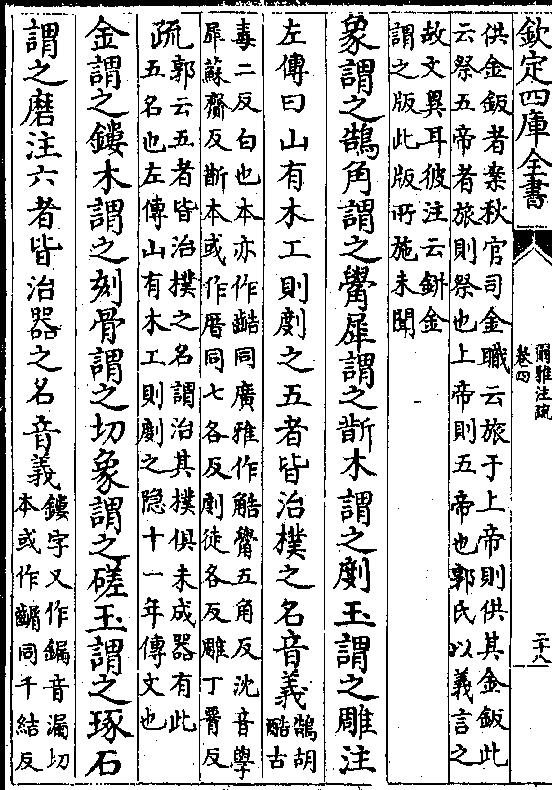 欽定四庫全書
爾雅注疏
卷四
二十八
供金鈑者案秋官司金職云旅于上帝則供其金鈑此
云祭五帝者旅則祭也上帝則五帝也郭氏以義言之
故文異耳彼注云鉼金
謂之版此版所施未聞
象謂之鵠角謂之觷犀謂之剒木謂之劇玉謂之雕注
左傳曰山有木工則劇之五者皆治樸之名音義鵠胡
酷古
毒二反白也本亦作䶜同廣雅作觡觷五角反沈音學
犀蘇齎反斮本或作厝同七各反劇徒各反雕丁胥反
疏郭云五者皆治樸之名謂治其樸俱未成器有此
五名也左傳山有木工則劇之隐十一年傳文也
金謂之鏤木謂之刻骨謂之切象謂之磋玉謂之琢石
謂之磨注六者皆治器之名音義鏤字又作鏂音漏切
本或作䶩同千結反